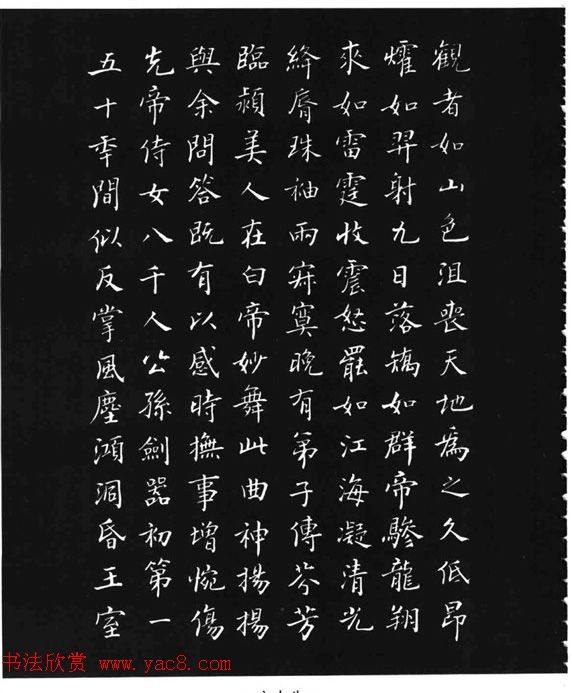 觀者如山色沮喪天地爲之久低昂
燿如羿射九日落矯如群帝驂龍翔
來如雷霆收震怒罷如江海凝清光
絳脣珠袖兩寂寞晚有弟子傳芬芳
臨潁美人在白帝妙舞此曲神揚揚
與余問答既有以感時撫事增惋傷
先帝侍女八千人公孫劍器初第一
五十年間似反掌風塵澒洞昏王室
书法欣赏 www.yac8.com